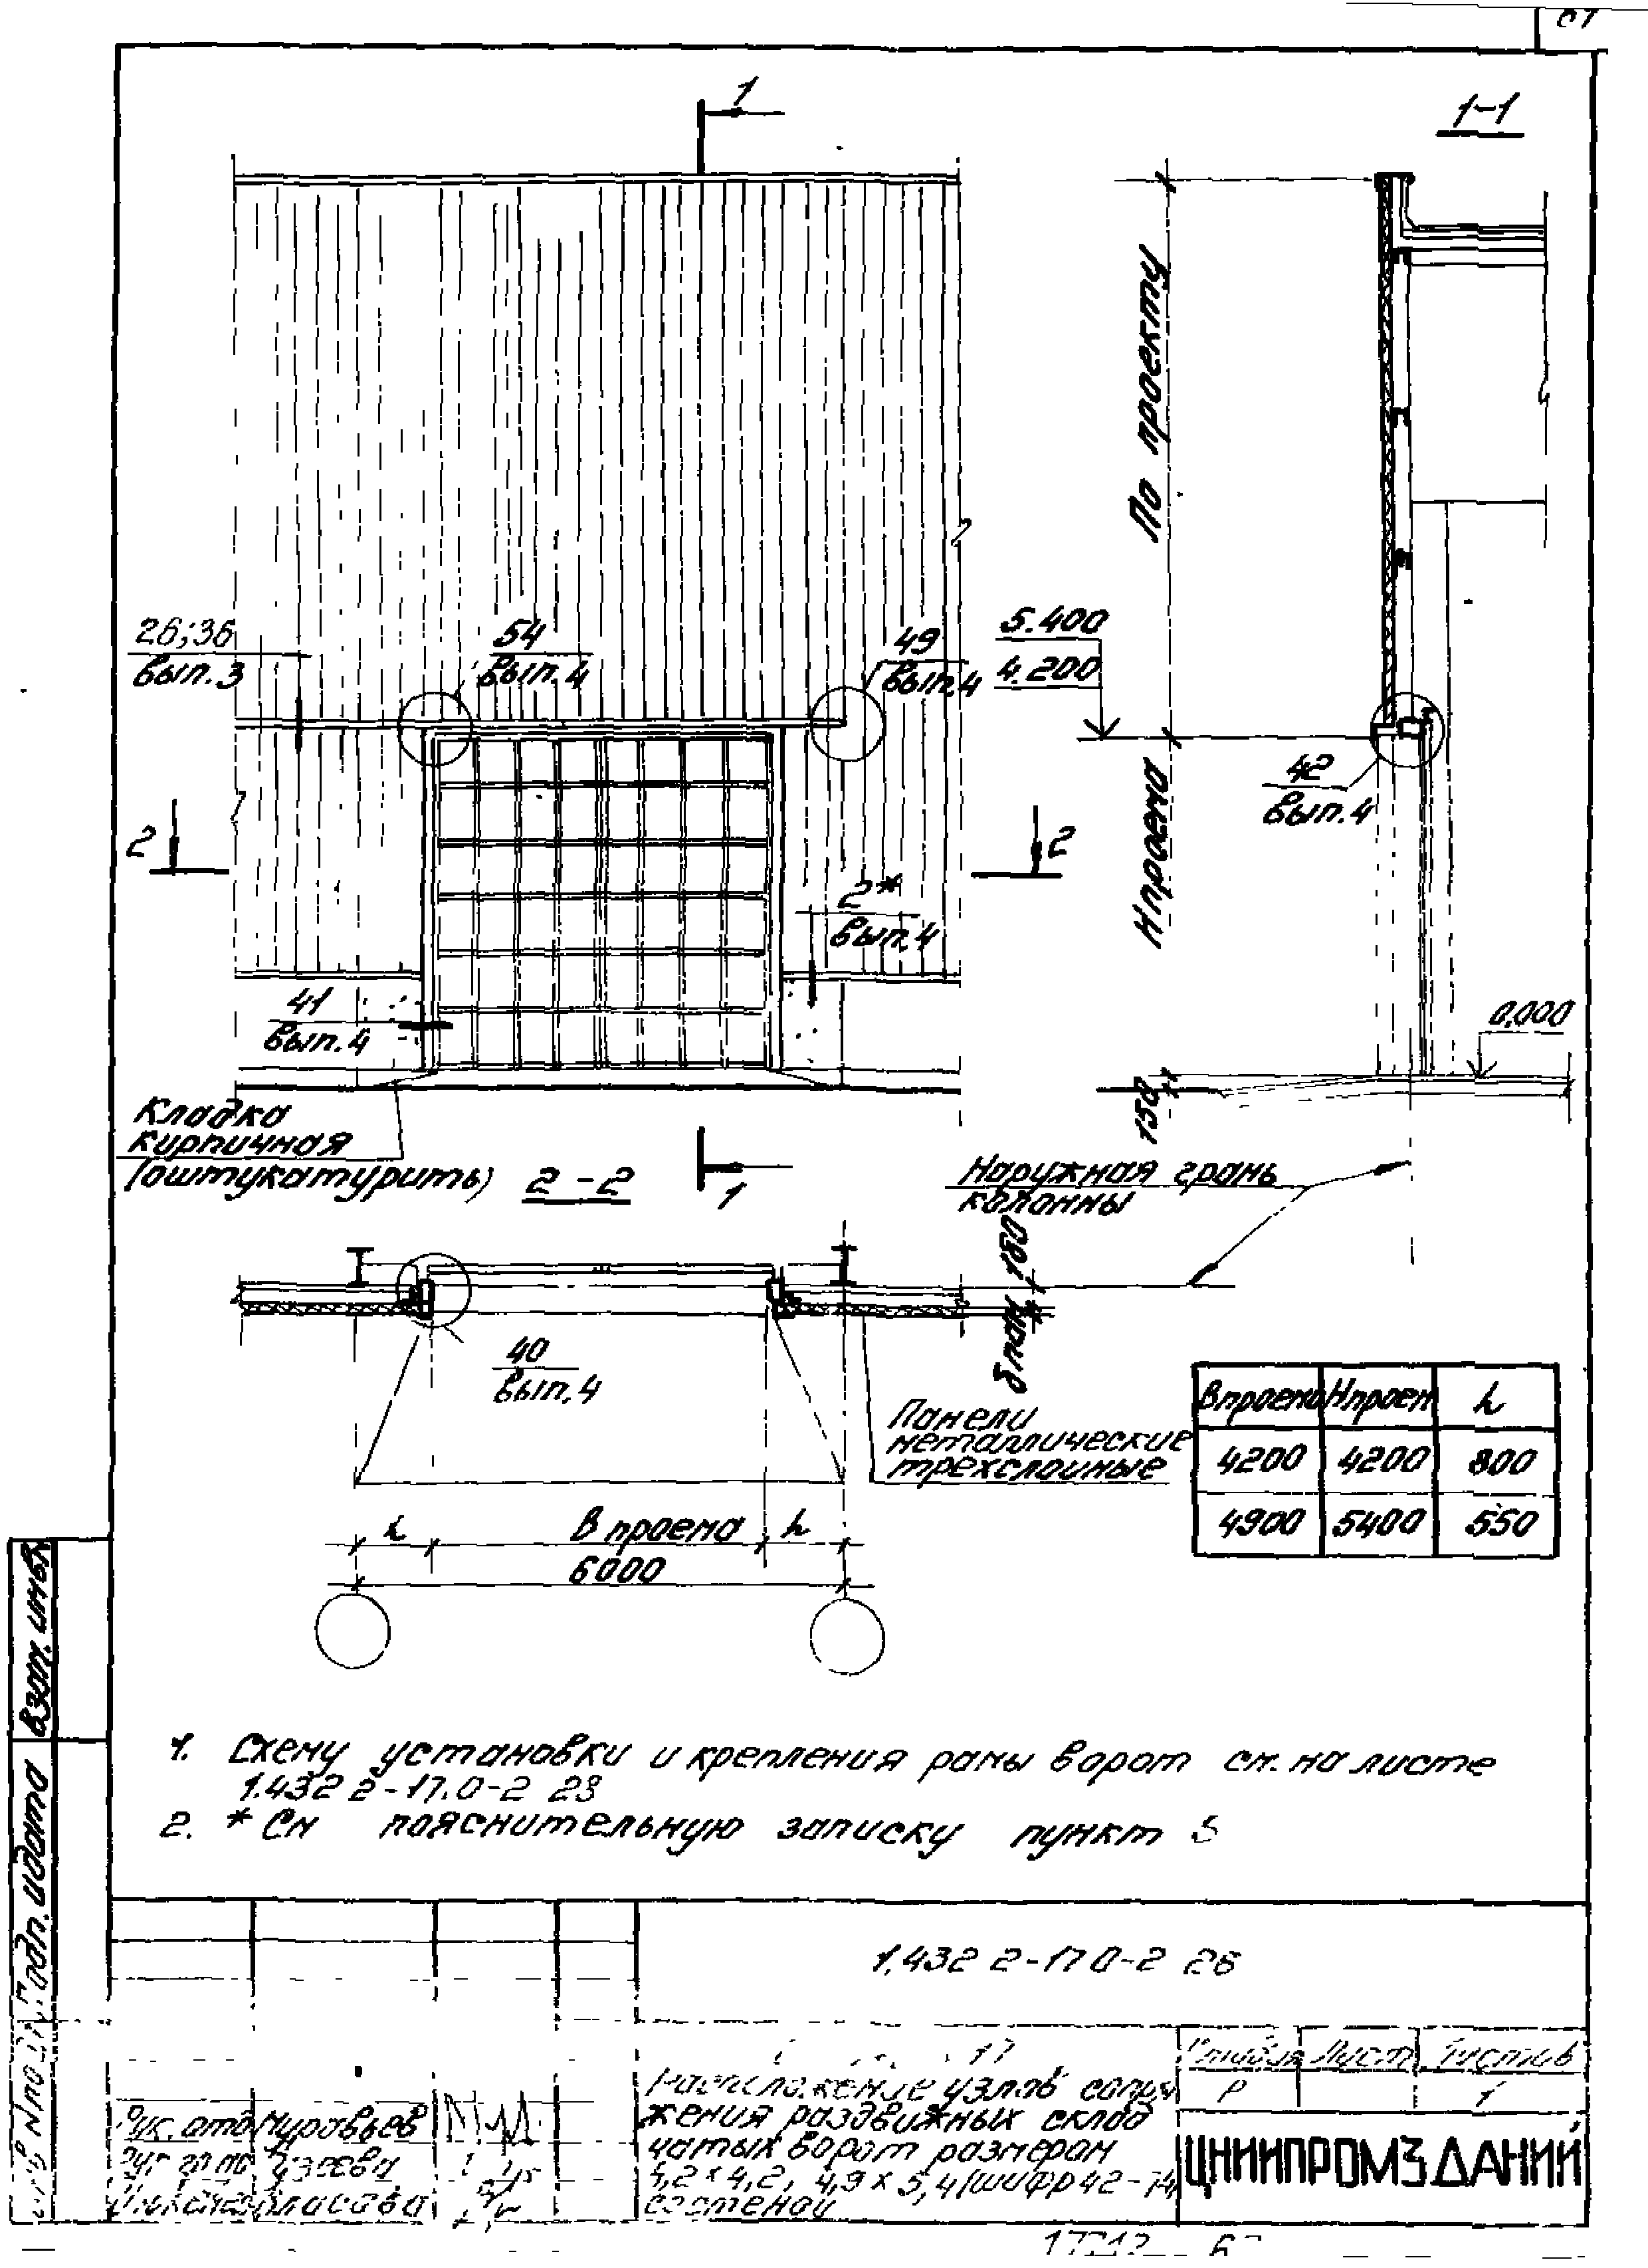 1
1-1
По проекту
26; 36
вып. 3
54
вып. 4
49
вып. 4
5.400
4.200
42
вып. 4
2
2
Н проема
2*
вып. 4
41
вып. 4
0,000
150
Кладка
кирпичная
(оштукатурить)
2-2
1
Наружная грань
колонны
180
δ пан
40
вып. 4
Панели
металлические
трехслойные
В проема Н проем h
4200 4200 800
4900 5400 550
h В проема h
6000
1. Схему установки и крепления рамы ворот см. на листе
1.432 2-17.0-2 28
2. * См пояснительную записку пункт 5
Взам. инв.
Подп. и дата
1.432 2-17 0-2 26
Расположение узлов сопря
жения раздвижных склад
чатых ворот размером
4,2×4,2, 4,9×5,4 (шифр 42-74)
со стеной
Стадия Лист Листов
Р 1
Рук. отд Муравьев
ЦНИИПРОМЗДАНИЙ